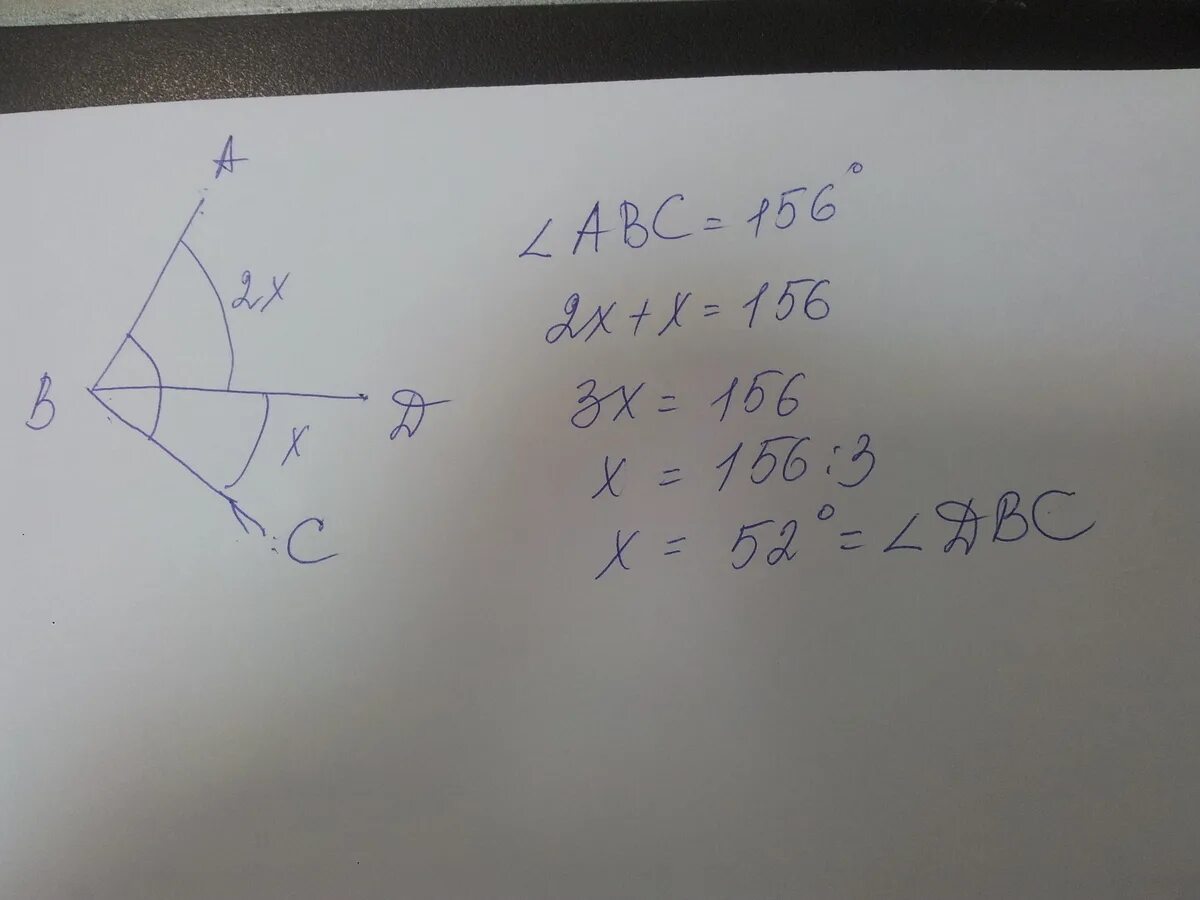 A
2x
B
D
x
C
∠ABC = 156°
2x + x = 156
3x = 156
x = 156 : 3
x = 52° = ∠DBC